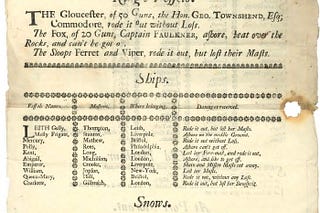 THE Gloucester, of 50 Guns, the Hon. GEO. TOWNSHEND, Esq;
Commodore, rode it out without Loss.
The Fox, of 20 Guns, Captain FAULKNER, ashore, beat over the
Rocks, and can't be got
The Sloops Ferret and Viper, rode it out, but lost their Masts.
Ships.
Vessels Names. Masters. Where belonging. Damage received.
LEITH Gally, Thompson, Leith, Rode it out, but lost her Mast.
Molly Frigate, Liverpool, Ashore on the middle Ground.
Mercury, Mathew, Bristol, Rode it out without Loss.
Polly, Rott, Philadelphia, Ashore can't get off.
Kent, Long, London, Lost her Fore-mast, and rode it out.
Abigail, London, Ashore, and like to get off.
Emperor, Crooks, Liverpool, Main and Mizen Masts cut away.
William, Jordan, New-York, Lost her Masts.
Queen-Mary, Hill, Bristol, Rode it out, without any Loss.
Charlotte, Gilmirish, London, Rode it out, but lost her Bowsprit.
Snows.